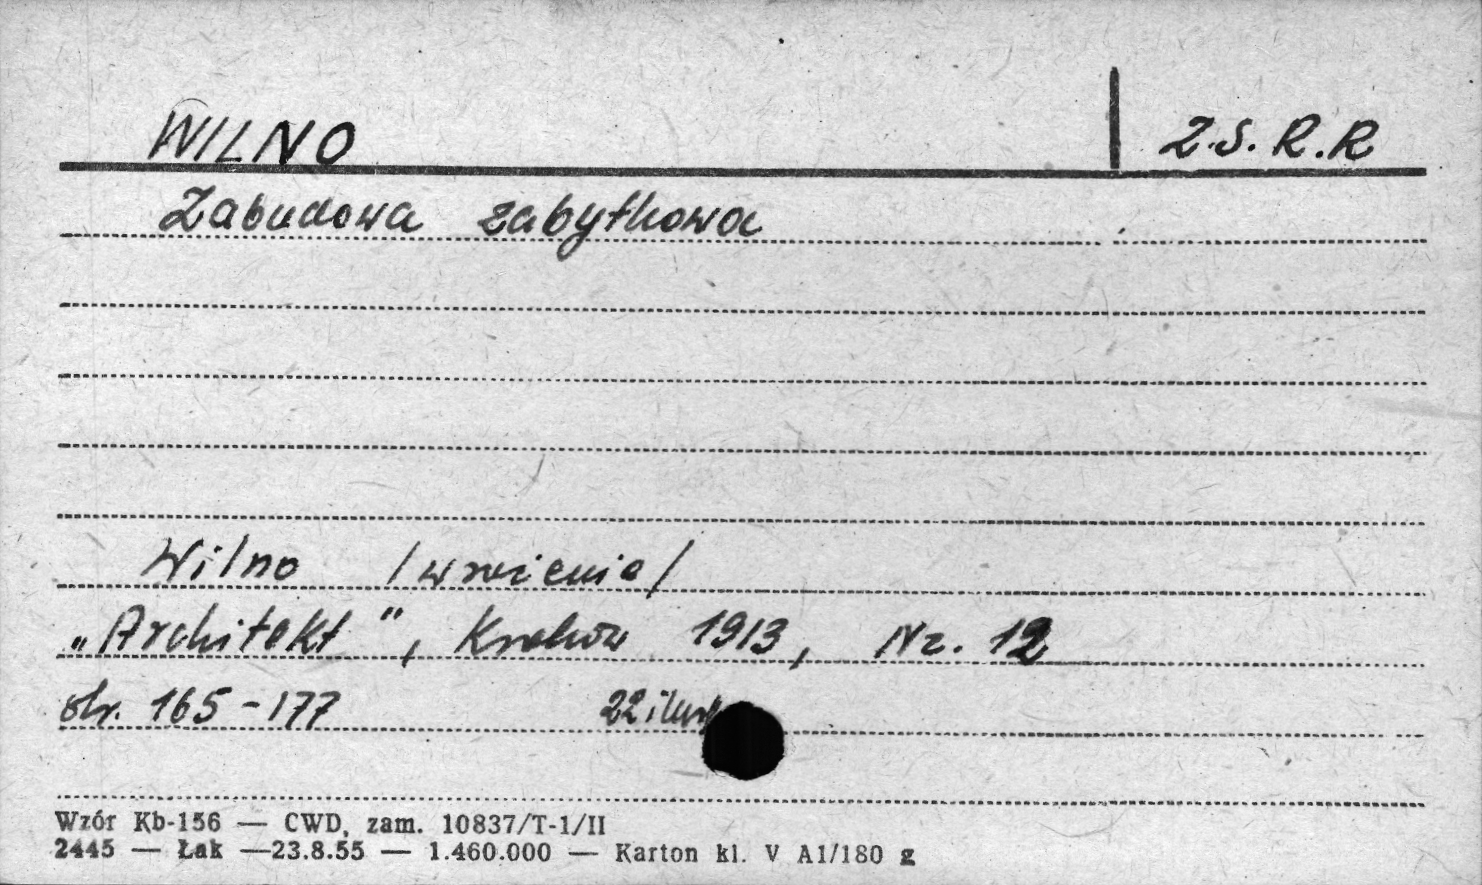 WILNO Z.S.R.R
Zabudowa zabytkowa
Wilno /wrażenia/
„Architekt", Kraków 1913, Nr. 12
str. 165-177 22 ilustr
Wzór Kb-156 — CWD, zam. 10837/T-1/II
2445 — Łak —23.8.55 — 1.460.000 — Karton kl. V A1/180 g